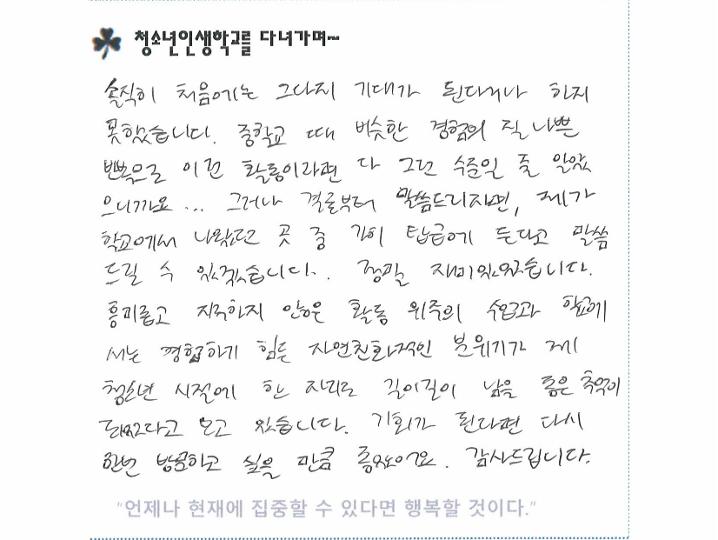 청소년인생학교를 다녀가며~
솔직히 처음에는 그다지 기대가 된다거나 하지
못했습니다. 중학교 때 비슷한 경험의 질 나쁜
반복으로 이런 활동이라면 다 그런 수준일 줄 알았
으니까요... 그러나 결론부터 말씀드리자면, 제가
학교에서 나왔던 곳 중 감히 탑급에 든다고 말씀
드릴 수 있겠습니다.. 정말 재미있었습니다.
흥미롭고 지루하지 않은 활동 위주의 수업과 학교에
서는 경험하기 힘든 자연친화적인 분위기가 제
청소년 시절에 한 자리로 길이길이 남을 좋은 추억이
되었다고 보고 있습니다. 기회가 된다면 다시
한번 방문하고 싶을 만큼 좋았어요. 감사드립니다.
"언제나 현재에 집중할 수 있다면 행복할 것이다."